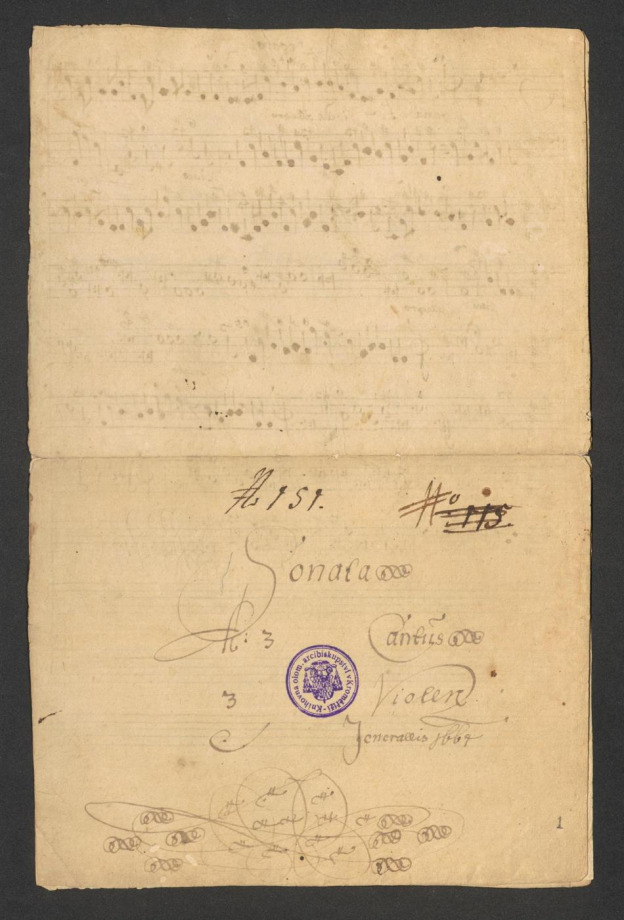 N 151.
No 115.
Sonata
A: 3 Cantus
3 Violen
C Jenerallis 1664
Knihovna olom. arcibiskupství v Kroměříži
1